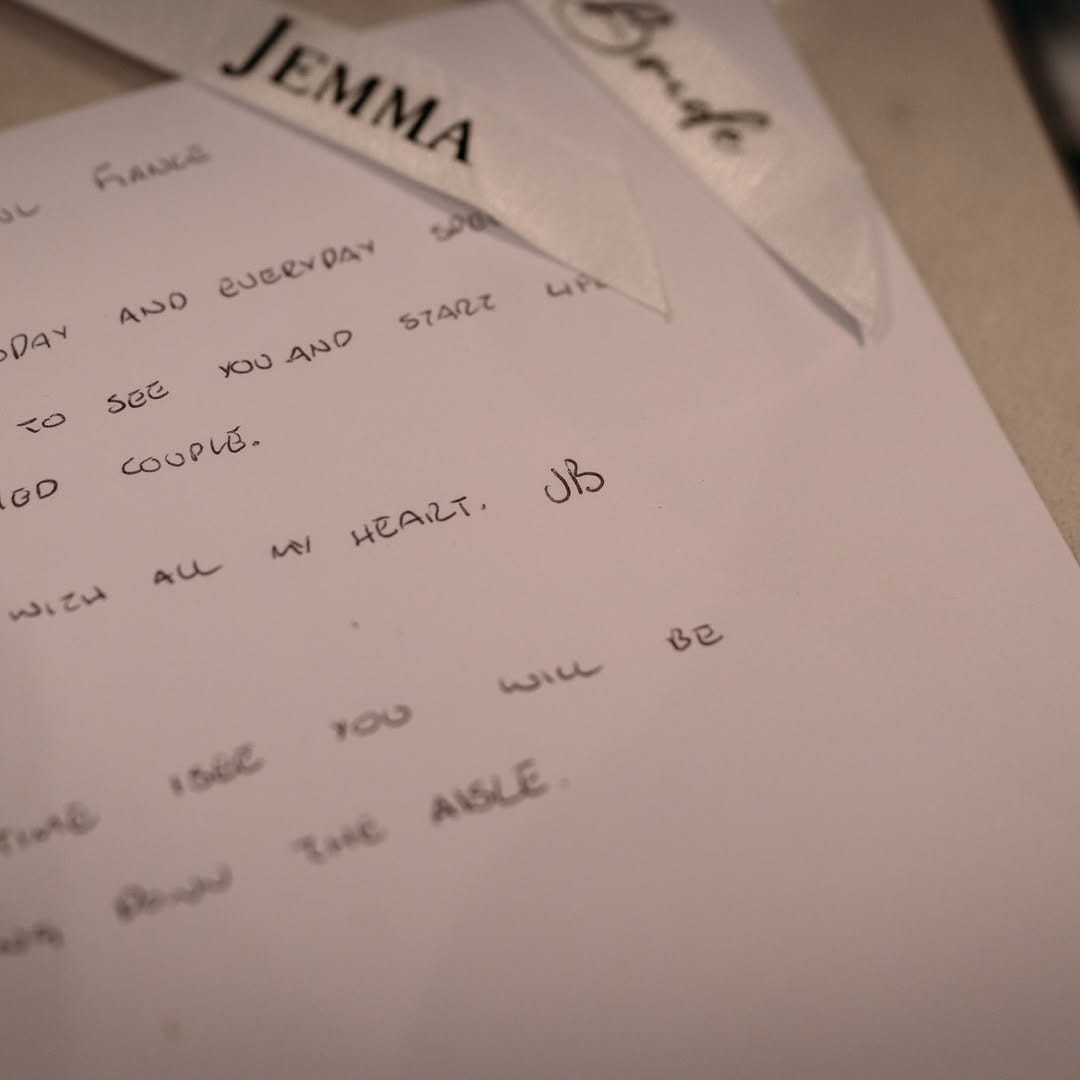 JEMMA
Bride
FIANCE
AND EVERYDAY
TO SEE YOU AND START
COUPLE.
WITH ALL MY HEART. JB
TIME I SEE YOU WILL BE
DOWN THE AISLE.